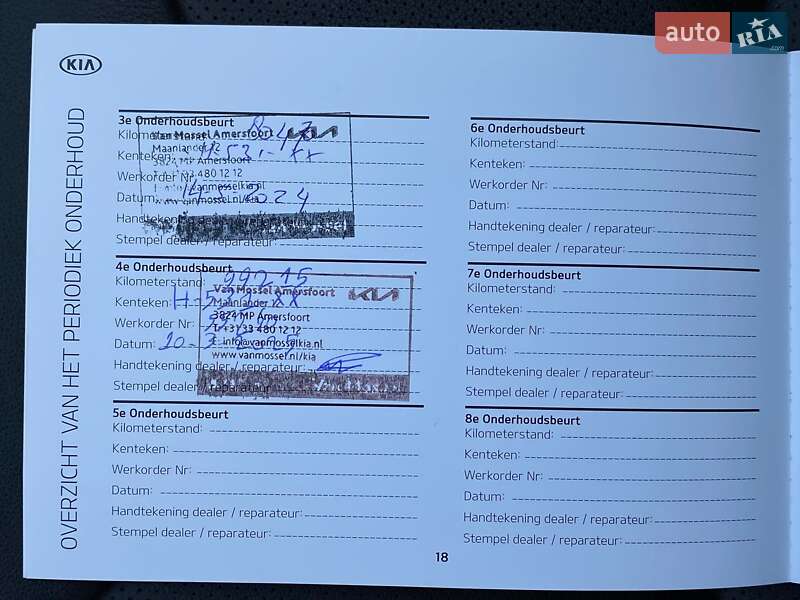 auto RIA.com
KIA
OVERZICHT VAN HET PERIODIEK ONDERHOUD
3e Onderhoudsbeurt
Kilometerstand:
Van Mossel Amersfoort KIA
Maanlander 12
Kenteken:
3824 MP Amersfoort
Werkorder Nr:
vanmosselkia.nl
Datum: 2024
www.vanmossel.nl/kia
Handtekening dealer / reparateur:
Stempel dealer / reparateur:
4e Onderhoudsbeurt
Kilometerstand: 99215
Van Mossel Amersfoort KIA
Kenteken: H-5 XX
Maanlander 12
3824 MP Amersfoort
Werkorder Nr:
t. +31 33 480 12 12
Datum: 10-3-2025
info@vanmosselkia.nl
www.vanmossel.nl/kia
Handtekening dealer / reparateur:
Stempel dealer / reparateur
5e Onderhoudsbeurt
Kilometerstand:
Kenteken:
Werkorder Nr:
Datum:
Handtekening dealer / reparateur:
Stempel dealer / reparateur:
6e Onderhoudsbeurt
Kilometerstand:
Kenteken:
Werkorder Nr:
Datum:
Handtekening dealer / reparateur:
Stempel dealer / reparateur:
7e Onderhoudsbeurt
Kilometerstand:
Kenteken:
Werkorder Nr:
Datum:
Handtekening dealer / reparateur:
Stempel dealer / reparateur:
8e Onderhoudsbeurt
Kilometerstand:
Kenteken:
Werkorder Nr:
Datum:
Handtekening dealer / reparateur:
Stempel dealer / reparateur:
18